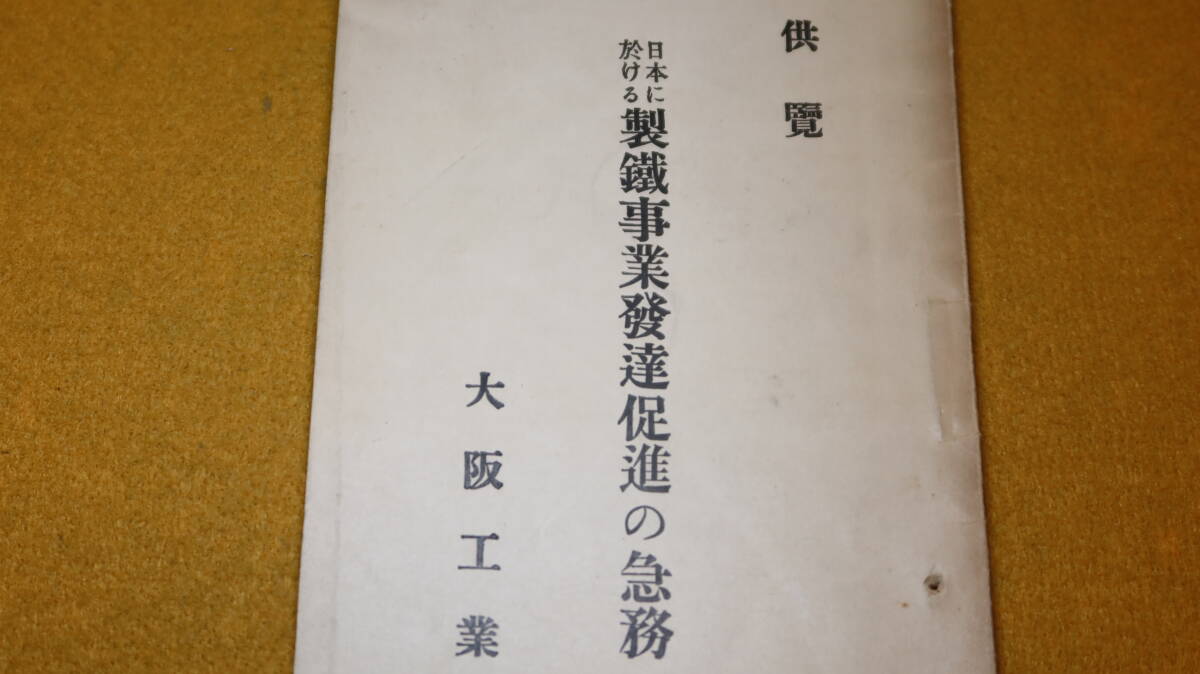 供覽
日本に
於ける
製鐵事業發達促進の急務
大阪工業